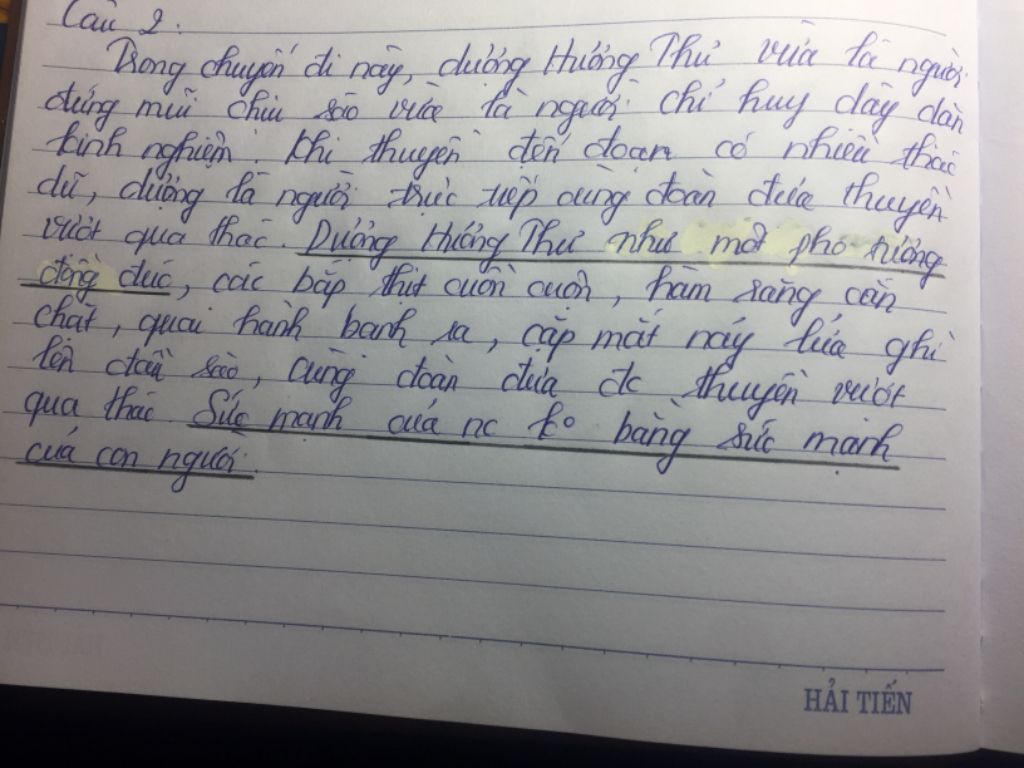 Câu 2:
Trong chuyến đi này, dượng Hương Thư vừa là người
đứng mũi chịu sào vừa là người chỉ huy dày dạn
kinh nghiệm. Khi thuyền đến đoạn có nhiều thác
dữ, dượng là người trực tiếp cùng đoàn đưa thuyền
vượt qua thác. Dượng Hương Thư như một pho tượng
đồng đúc, các bắp thịt cuồn cuộn, hàm răng cắn
chặt, quai hàm banh ra, cặp mắt nảy lửa ghì
lên đầu sào, cùng đoàn đưa đc thuyền vượt
qua thác. Sức mạnh của nc ko bằng sức mạnh
của con người.
HẢI TIẾN